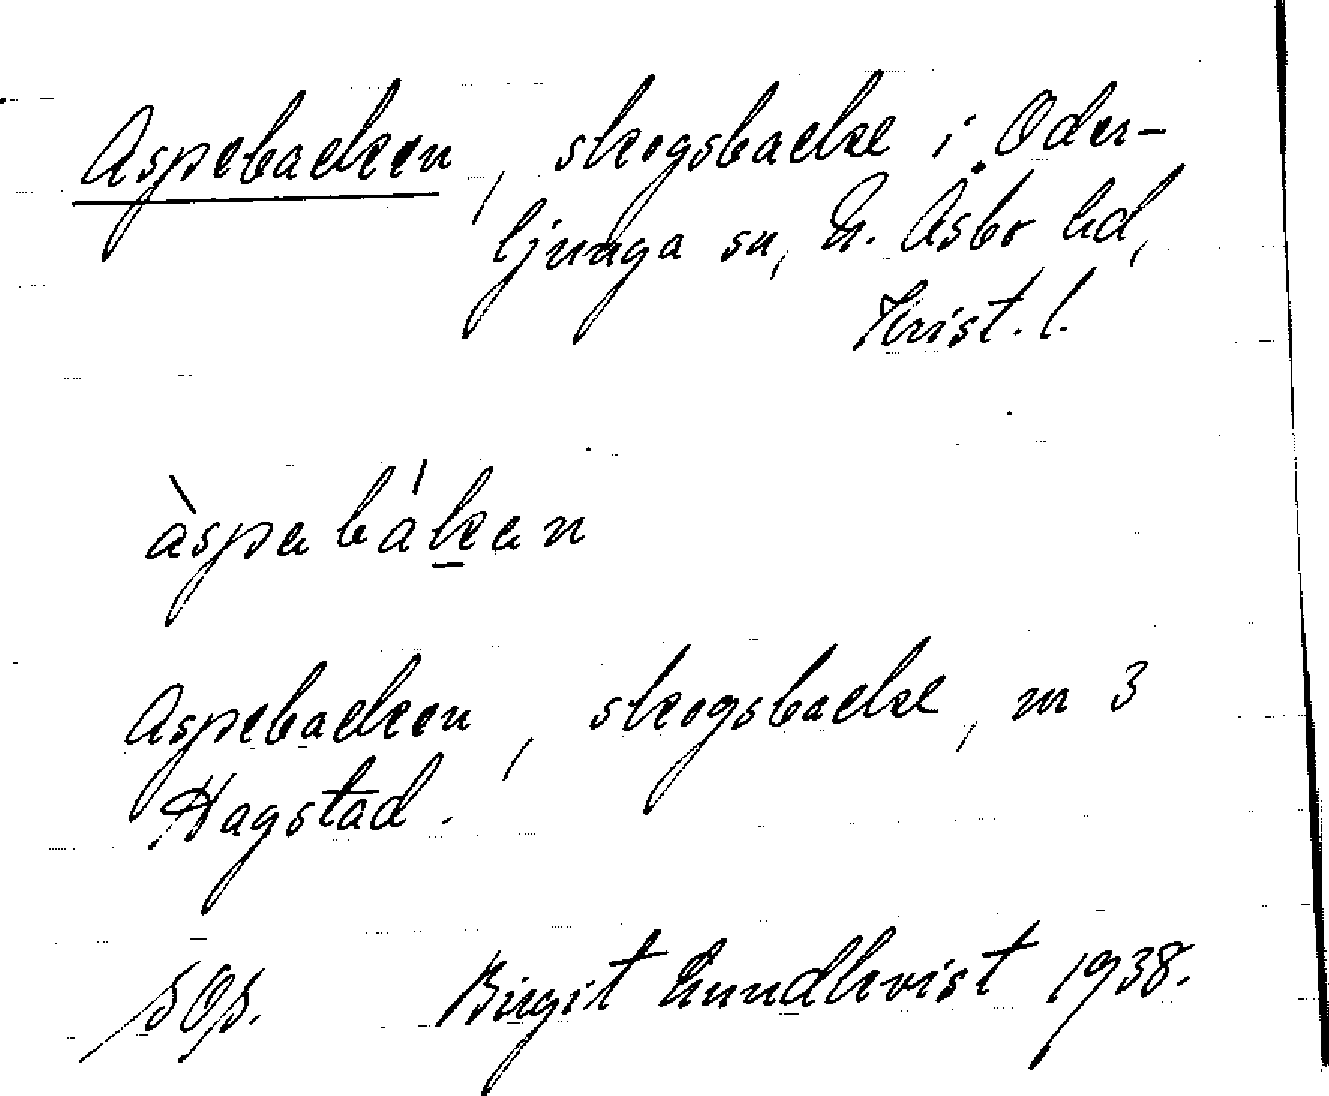 Aspebacken, skogsbacke i Oder-
ljunga sn, N. Åsbo hd,
Krist. l.
àspabákan
Aspebacken, skogsbacke, nr 3
Hagstad.
SOS. Birgit Lundkvist 1938.